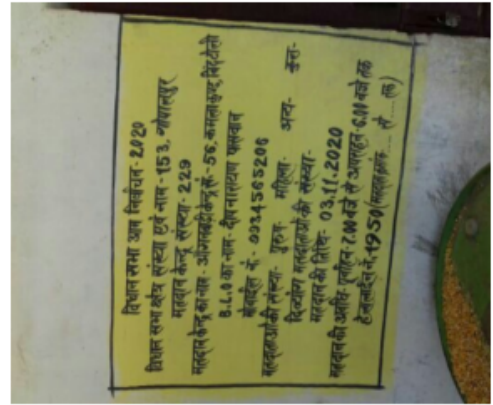 विधान सभा आम निर्वाचन - 2020
विधान सभा क्षेत्र संख्या एवं नाम - 153, गोपालपुर
मतदान केन्द्र संख्या - 229
मतदान केन्द्र का नाम - आंगनबाड़ी केन्द्र सं - 56, कमलाकुण्ड,
B.L.O का नाम -
मोबाईल नं. -
मतदाताओं की संख्या - पुरुष - महिला - अन्य - कुल -
दिव्यांग मतदाताओं की संख्या -
मतदान की तिथि - 03.11.2020
मतदान की अवधि - पूर्वाहन - 7.00 बजे से अपराहन - 6.00 बजे तक
हेल्पलाईन नं. 1950